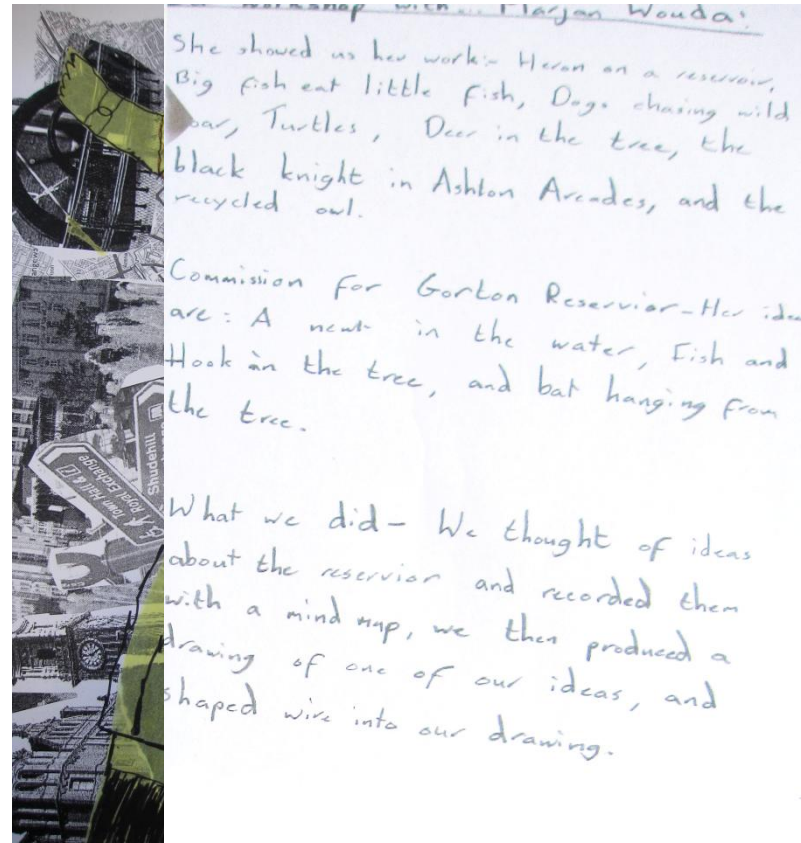 workshop with Marjan Wouda:
She showed us her work:- Heron on a reservoir,
Big fish eat little fish, Dogs chasing wild
boar, Turtles, Deer in the tree, the
black knight in Ashton Arcades, and the
recycled owl.
Commission for Gorton Reservior - Her idea
are: A newt in the water, Fish and
Hook in the tree, and bat hanging from
the tree.
What we did - We thought of ideas
about the reservior and recorded them
with a mind map, we then produced a
drawing of one of our ideas, and
shaped wire into our drawing.
Town Hall &
Royal Exchange
Shudehill